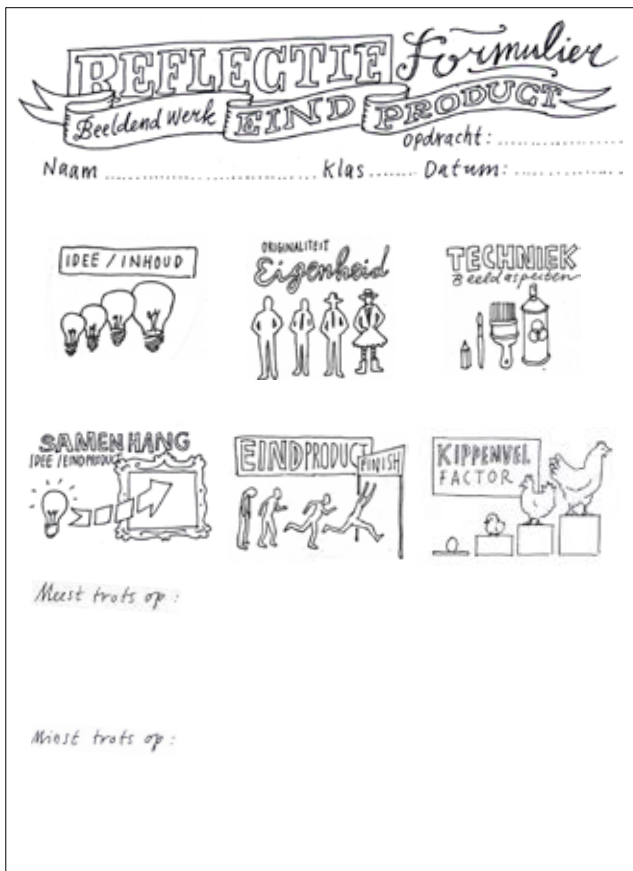 REFLECTIE Formulier
Beeldend Werk EIND PRODUCT
opdracht: ..................
Naam .............................. Klas ....... Datum: ..................
IDEE / INHOUD
ORIGINALITEIT
Eigenheid
TECHNIEK
Beeldaspecten
SAMENHANG
IDEE / EINDPRODUCT
EINDPRODUCT
FINISH
KIPPENVEL
FACTOR
Meest trots op :
Minst trots op :